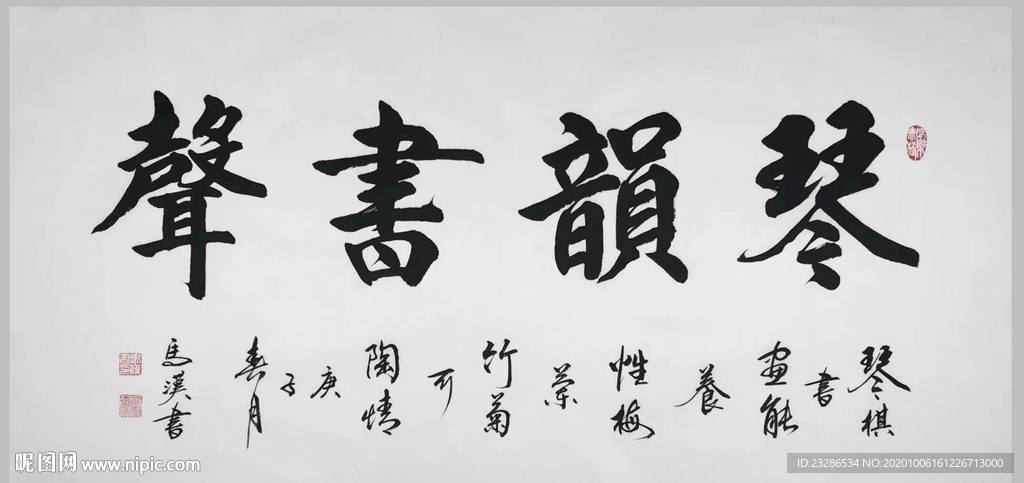 琴韻書聲
琴棋
書
畫能
養
性梅
蘭
竹菊
可
陶情
庚
子
春月
馬漢書
昵图网 www.nipic.com
ID:23286534 NO:20201006161226713000